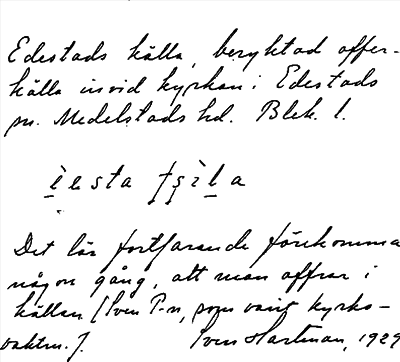 Edestads källa, beryktad offer-
källa invid kyrkan i Edestads
sn. Medelstads hd. Blek. l.
ìesta tʂìla
Det lär fortfarande förekomma
någon gång, att man offrar i
källan [Sven P-n, som varit kyrko-
vaktm.].
Sven Hartman, 1929